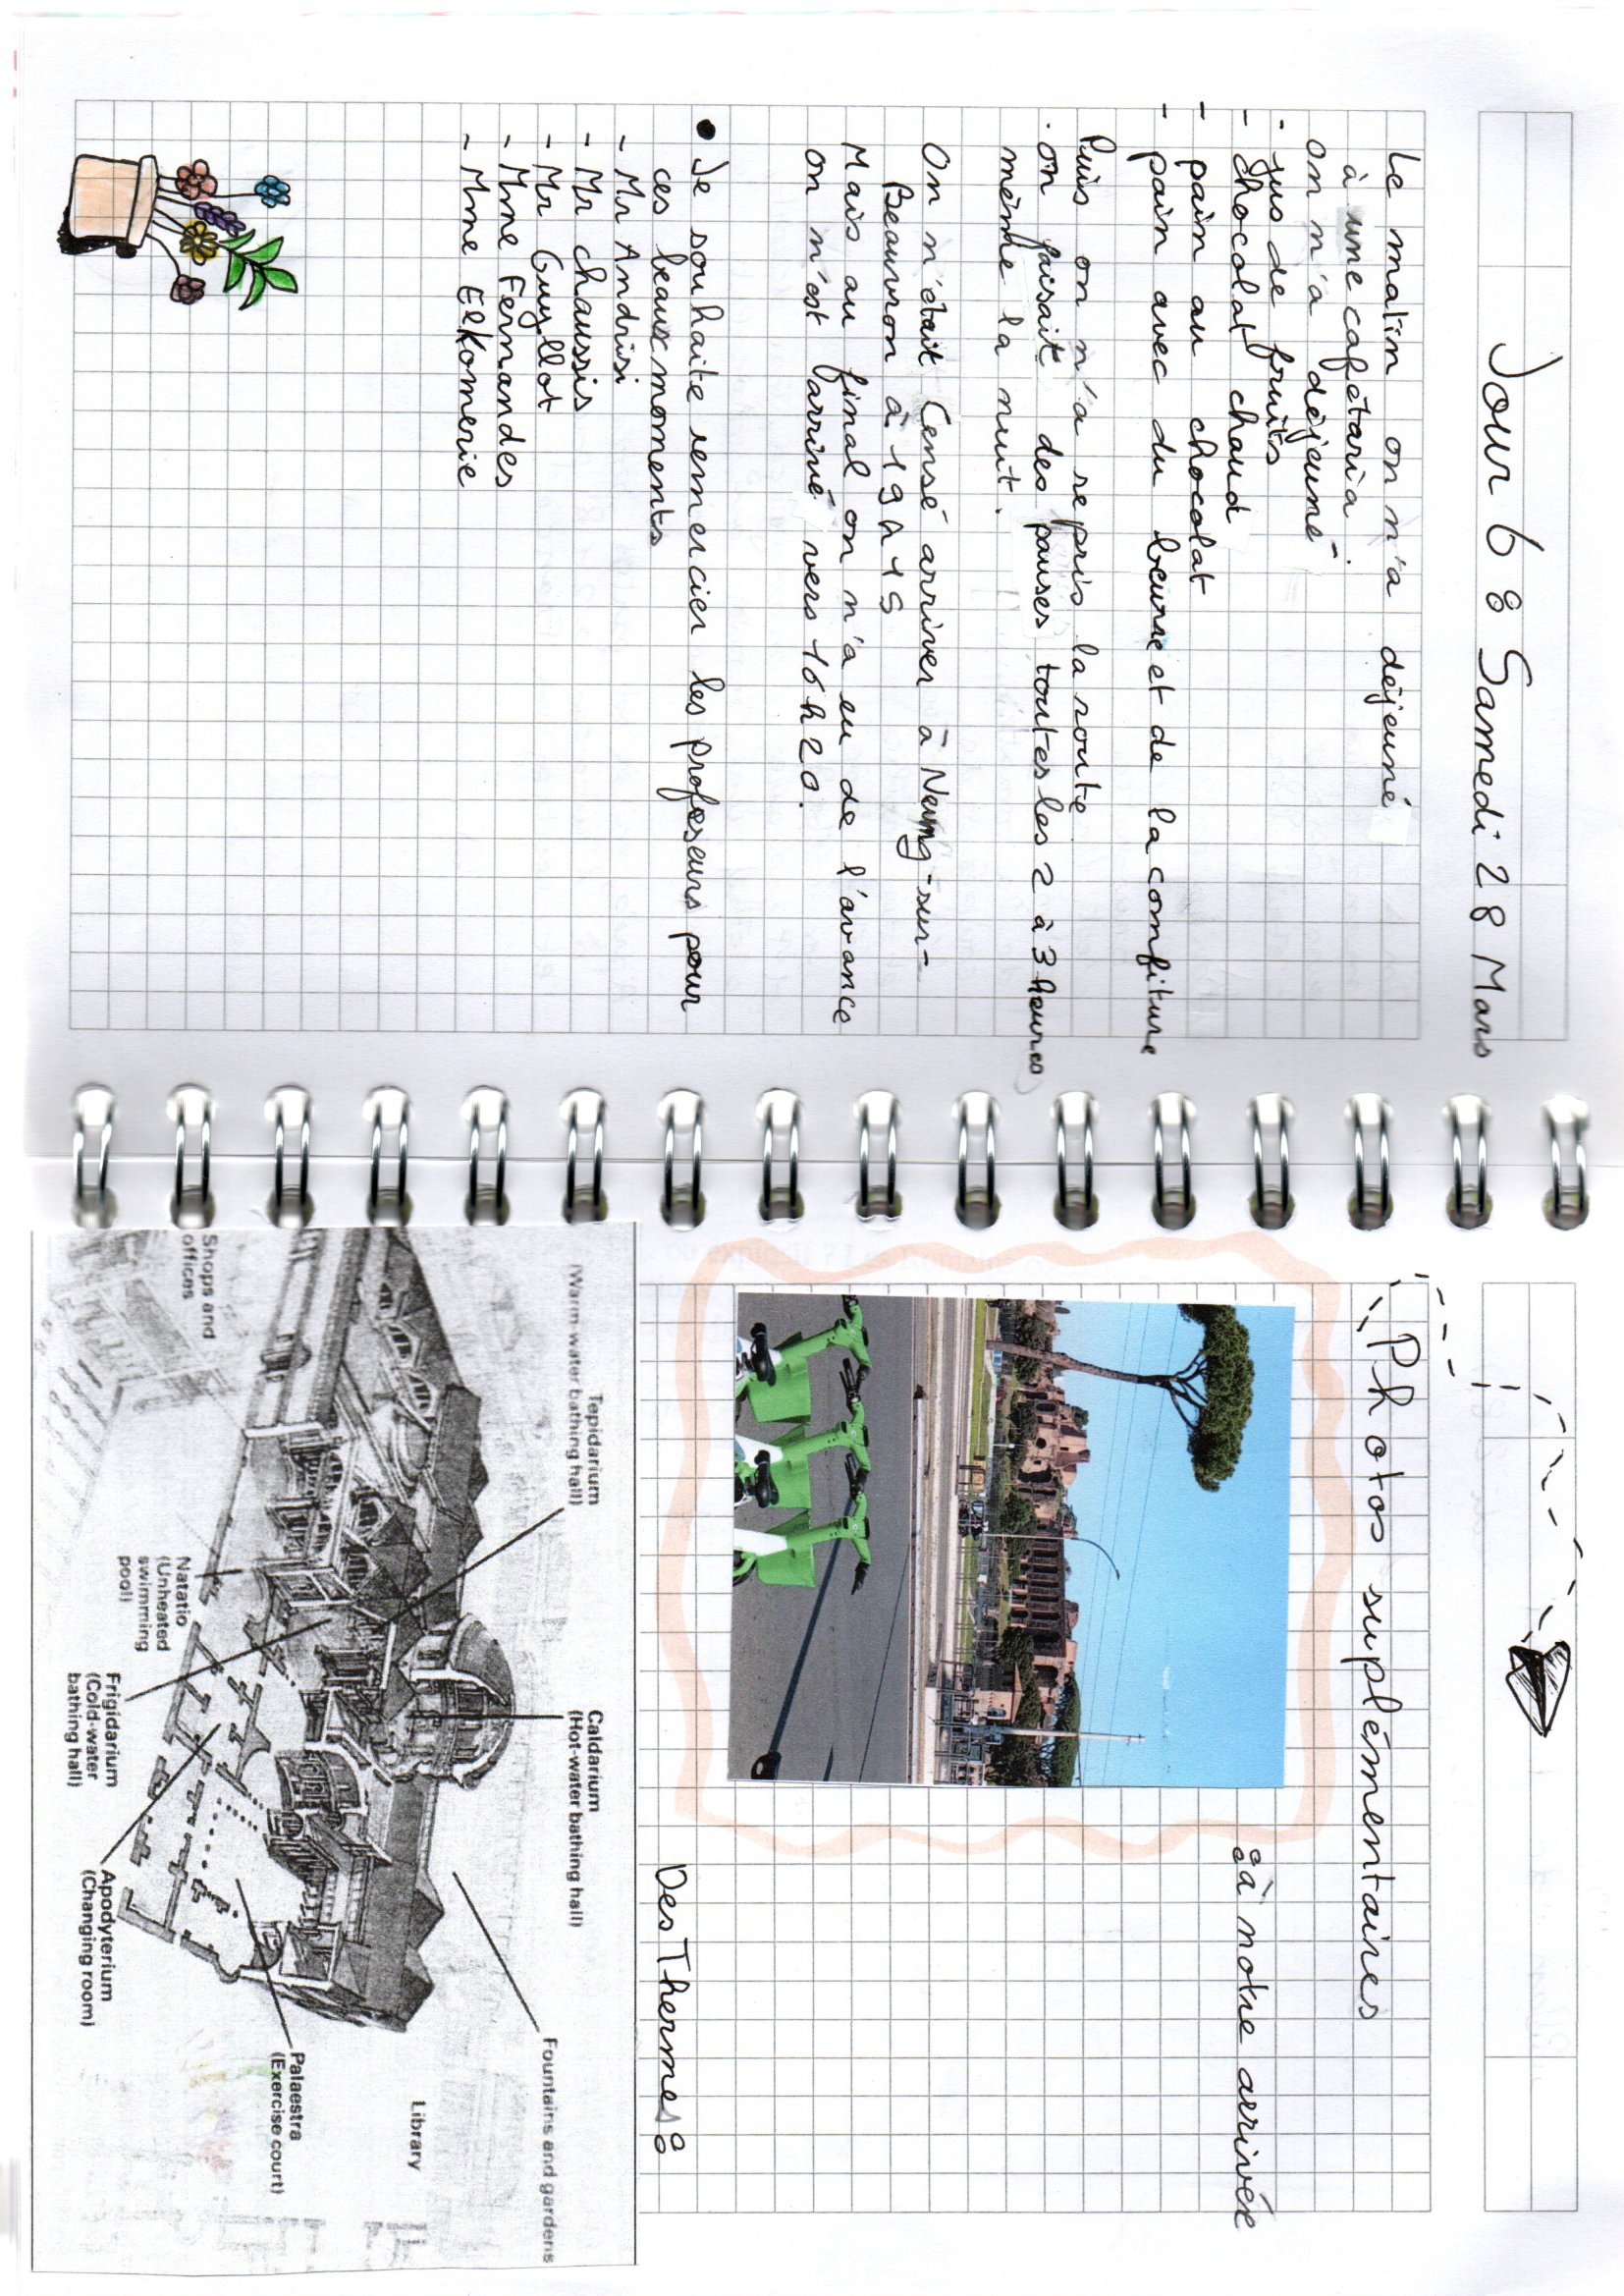 Jour 6 : Samedi 28 Mars
Le matin on n'a déjeuné
à une cafétaria.
On n'a déjeuné
- jus de fruits
- chocolat chaud
- pain au chocolat
- pain avec du beurre et de la comfiture
Puis on n'a repris la route
. on faisait des pauses toutes les 2 à 3 heures
même la nuit.
On n'était Censé arriver à Neung-sur-
Beauvron à 19h15
Mais au final on n'a eu de l'avance
on n'est arrivé vers 16h20.
• Je souhaite remercier les professeurs pour
ces beaux moments
- Mr Andrisi
- Mr chaussis
- Mr Guyllot
- Mme Fernandes
- Mme ElKomerie
Photos suplémentaires
: à notre arrivée
Des Thermes :
Tepidarium
(Warm-water bathing hall)
Caldarium
(Hot-water bathing hall)
Fountains and gardens
Library
Shops and
offices
Natatio
(Unheated
swimming
pool)
Frigidarium
(Cold-water
bathing hall)
Apodyterium
(Changing room)
Palaestra
(Exercise court)